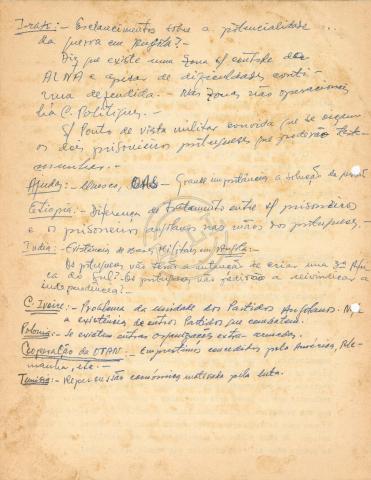 Iraq:- Esclarecimentos sobre a potencialidade
da guerra em Angola?-
Diz que existe uma zona s/ controle do
ALNA e apesar de dificuldades conti-
nua defendida.- Nas zonas não operacionais
há C. Politiques.-
S/ Ponto de vista militar convida que se
os dos prisioneiros portugueses que poderão teste-
munhar.-
Ajudas:- OAS - Grande importância a solução
Etiopia:- Diferença de tratamento entre s/ prisioneiros
e os prisioneiros angolanos nas mãos dos portugueses.-
India:- Existência de Bases Militares em Angola:-
Os portugueses não terão a intenção de criar uma 3ª
ca do Sul?- Os portugueses não reivindicar a
independência?-
C. Ivoire:- Problema da unidade dos Partidos Angolanos.
a existência de outros Partidos que combatem.
Polonia:- Se existem outras organizações extra-
Cooperação da OTAN:- Emprestimos concedidos pela América, Ale-
manha, etc.-
Tunisia:- Repercussão económica motivada pela luta.